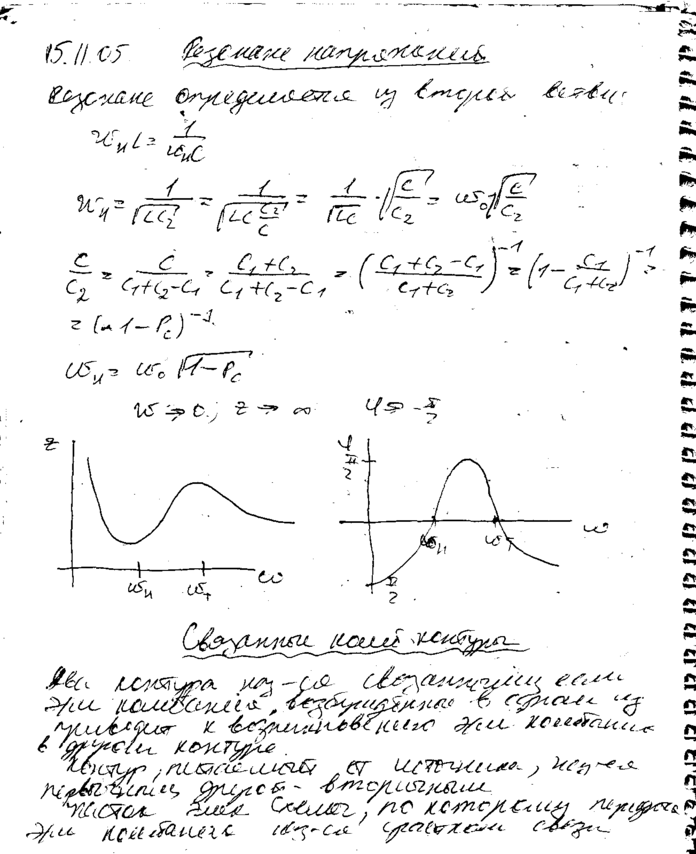 15.11.05 Резонанс напряжений
Резонанс определяется из второй ветви:
ω_н L = 1/(ω_н C)
ω_н = 1/√(LC₂) = 1/√(LC C₂/C) = 1/√(LC) · √(C/C₂) = ω₀√(C/C₂)
C/C₂ = C/(C₁+C₂-C₁) = (C₁+C₂)/(C₁+C₂-C₁) = ((C₁+C₂-C₁)/(C₁+C₂))⁻¹ = (1 - C₁/(C₁+C₂))⁻¹ =
= (1-P_c)⁻¹
ω_н = ω₀ √(1-P_c)
ω → 0; z → ∞ φ → -π/2
z
ω_н ω_т ω
φ
π/2
ω_н ω_т ω
π/2
Связанные колеб. контуры
Два контура наз-ся связанными если
эм колебания, возбуждённые в одном из
приводит к возникновению эм колебания
в другом контуре.
Контур, питаемый от источника, наз-ся
первичным, другой - вторичным
Участок элек схемы, по которому передача
эм колебания наз-ся участком связи